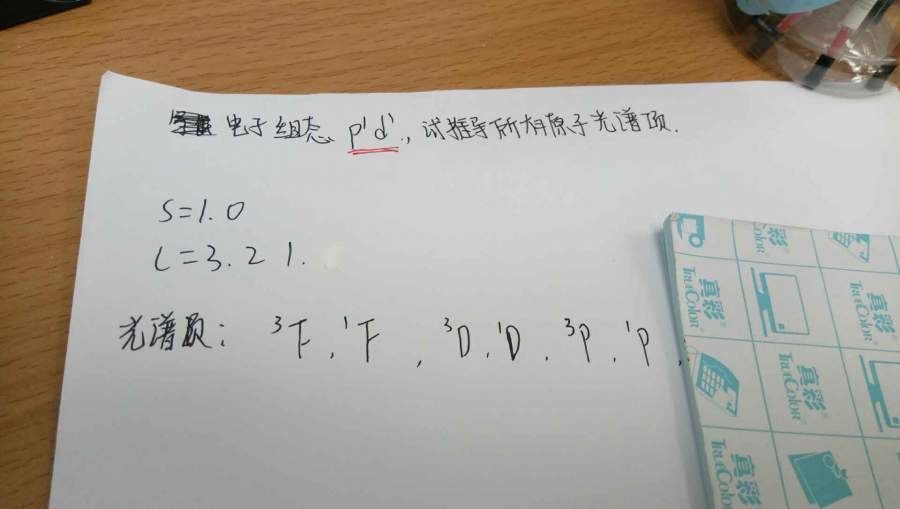 电子组态 p¹d¹, 试推导所有原子光谱项.
S=1.0
L=3.2 1.
光谱项: ³F, ¹F, ³D, ¹D, ³P, ¹P,
真彩
TRUECOLOR
真彩
TRUECOLOR
真彩
TRUECOLOR
真彩
TRUECOLOR
真彩
TRUECOLOR